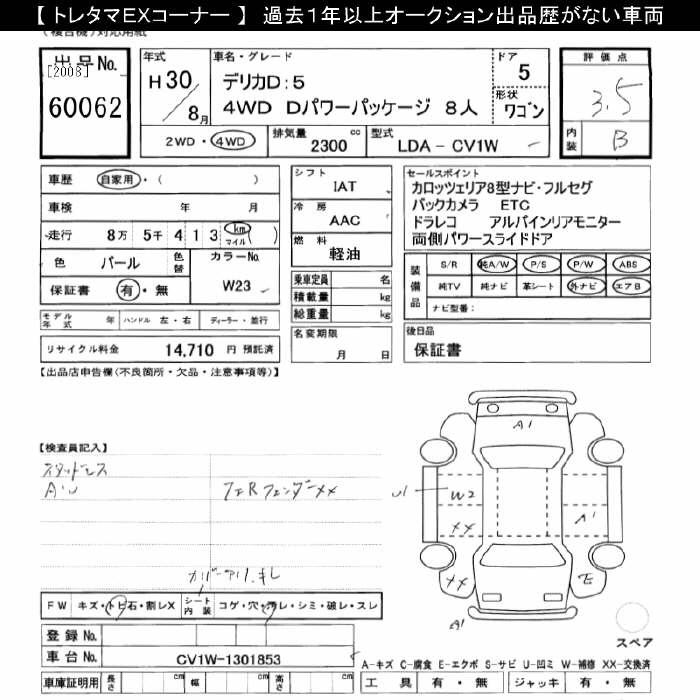 【 トレタマEXコーナー 】 過去1年以上オークション出品歴がない車両
(複合機)対応用紙
出品No. 年式 車名・グレード ドア 評価点
[2008] H30 デリカD:5 5 3.5
60062 8月 4WD Dパワーパッケージ 8人 形状 ワゴン 内装 B
2WD・4WD 排気量 2300 cc 型式 LDA - CV1W
車歴 自家用・( ) シフト IAT セールスポイント
車検 年 月 冷房 AAC カロッツェリア8型ナビ・フルセグ
バックカメラ ETC
走行 8万 5千 4 1 3 (km マイル) 燃料 軽油 ドラレコ アルパインリアモニター
両側パワースライドドア
色 パール 色替 カラーNo. W23 乗車定員 名 装備品 S/R 純A/W P/S P/W ABS
保証書 有・無 積載量 kg 純TV 純ナビ 革シート 外ナビ エアB
総重量 kg ナビ型番:
モデル年式 年 ハンドル 左・右 ディーラー・並行 名変期限 月 日 後日品
リサイクル料金 14,710 円 預託済 保証書
【出品店申告欄(不良箇所・欠品・注意事項等)】
A1
【検査員記入】
スタッドレス
A・U フェRフェンダーXX U1 W2
XX A1
カバーアリ、キレ XX E
FW キズ・トビ石・割レX シート内装 コゲ・穴・汚レ・シミ・破レ・スレ
A1
登録No. スペア
車台No. CV1W-1301853 A-キズ C-腐食 E-エクボ S-サビ U-凹ミ W-補修 XX-交換済
車庫証明用 長さ cm 幅 cm 高さ cm 工具 有・無 ジャッキ 有・無